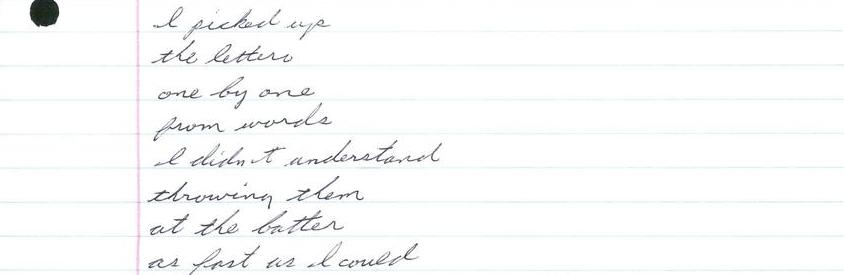 I picked up
the letters
one by one
from words
I didn't understand
throwing them
at the batter
as fast as I could